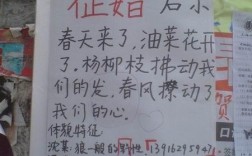 征婚 启示
春天来了,油菜花开
了.杨柳枝拂动我
们的发.春风撩动了
我们的心.
体貌特征
沈某:狼一般的特性 13916295947